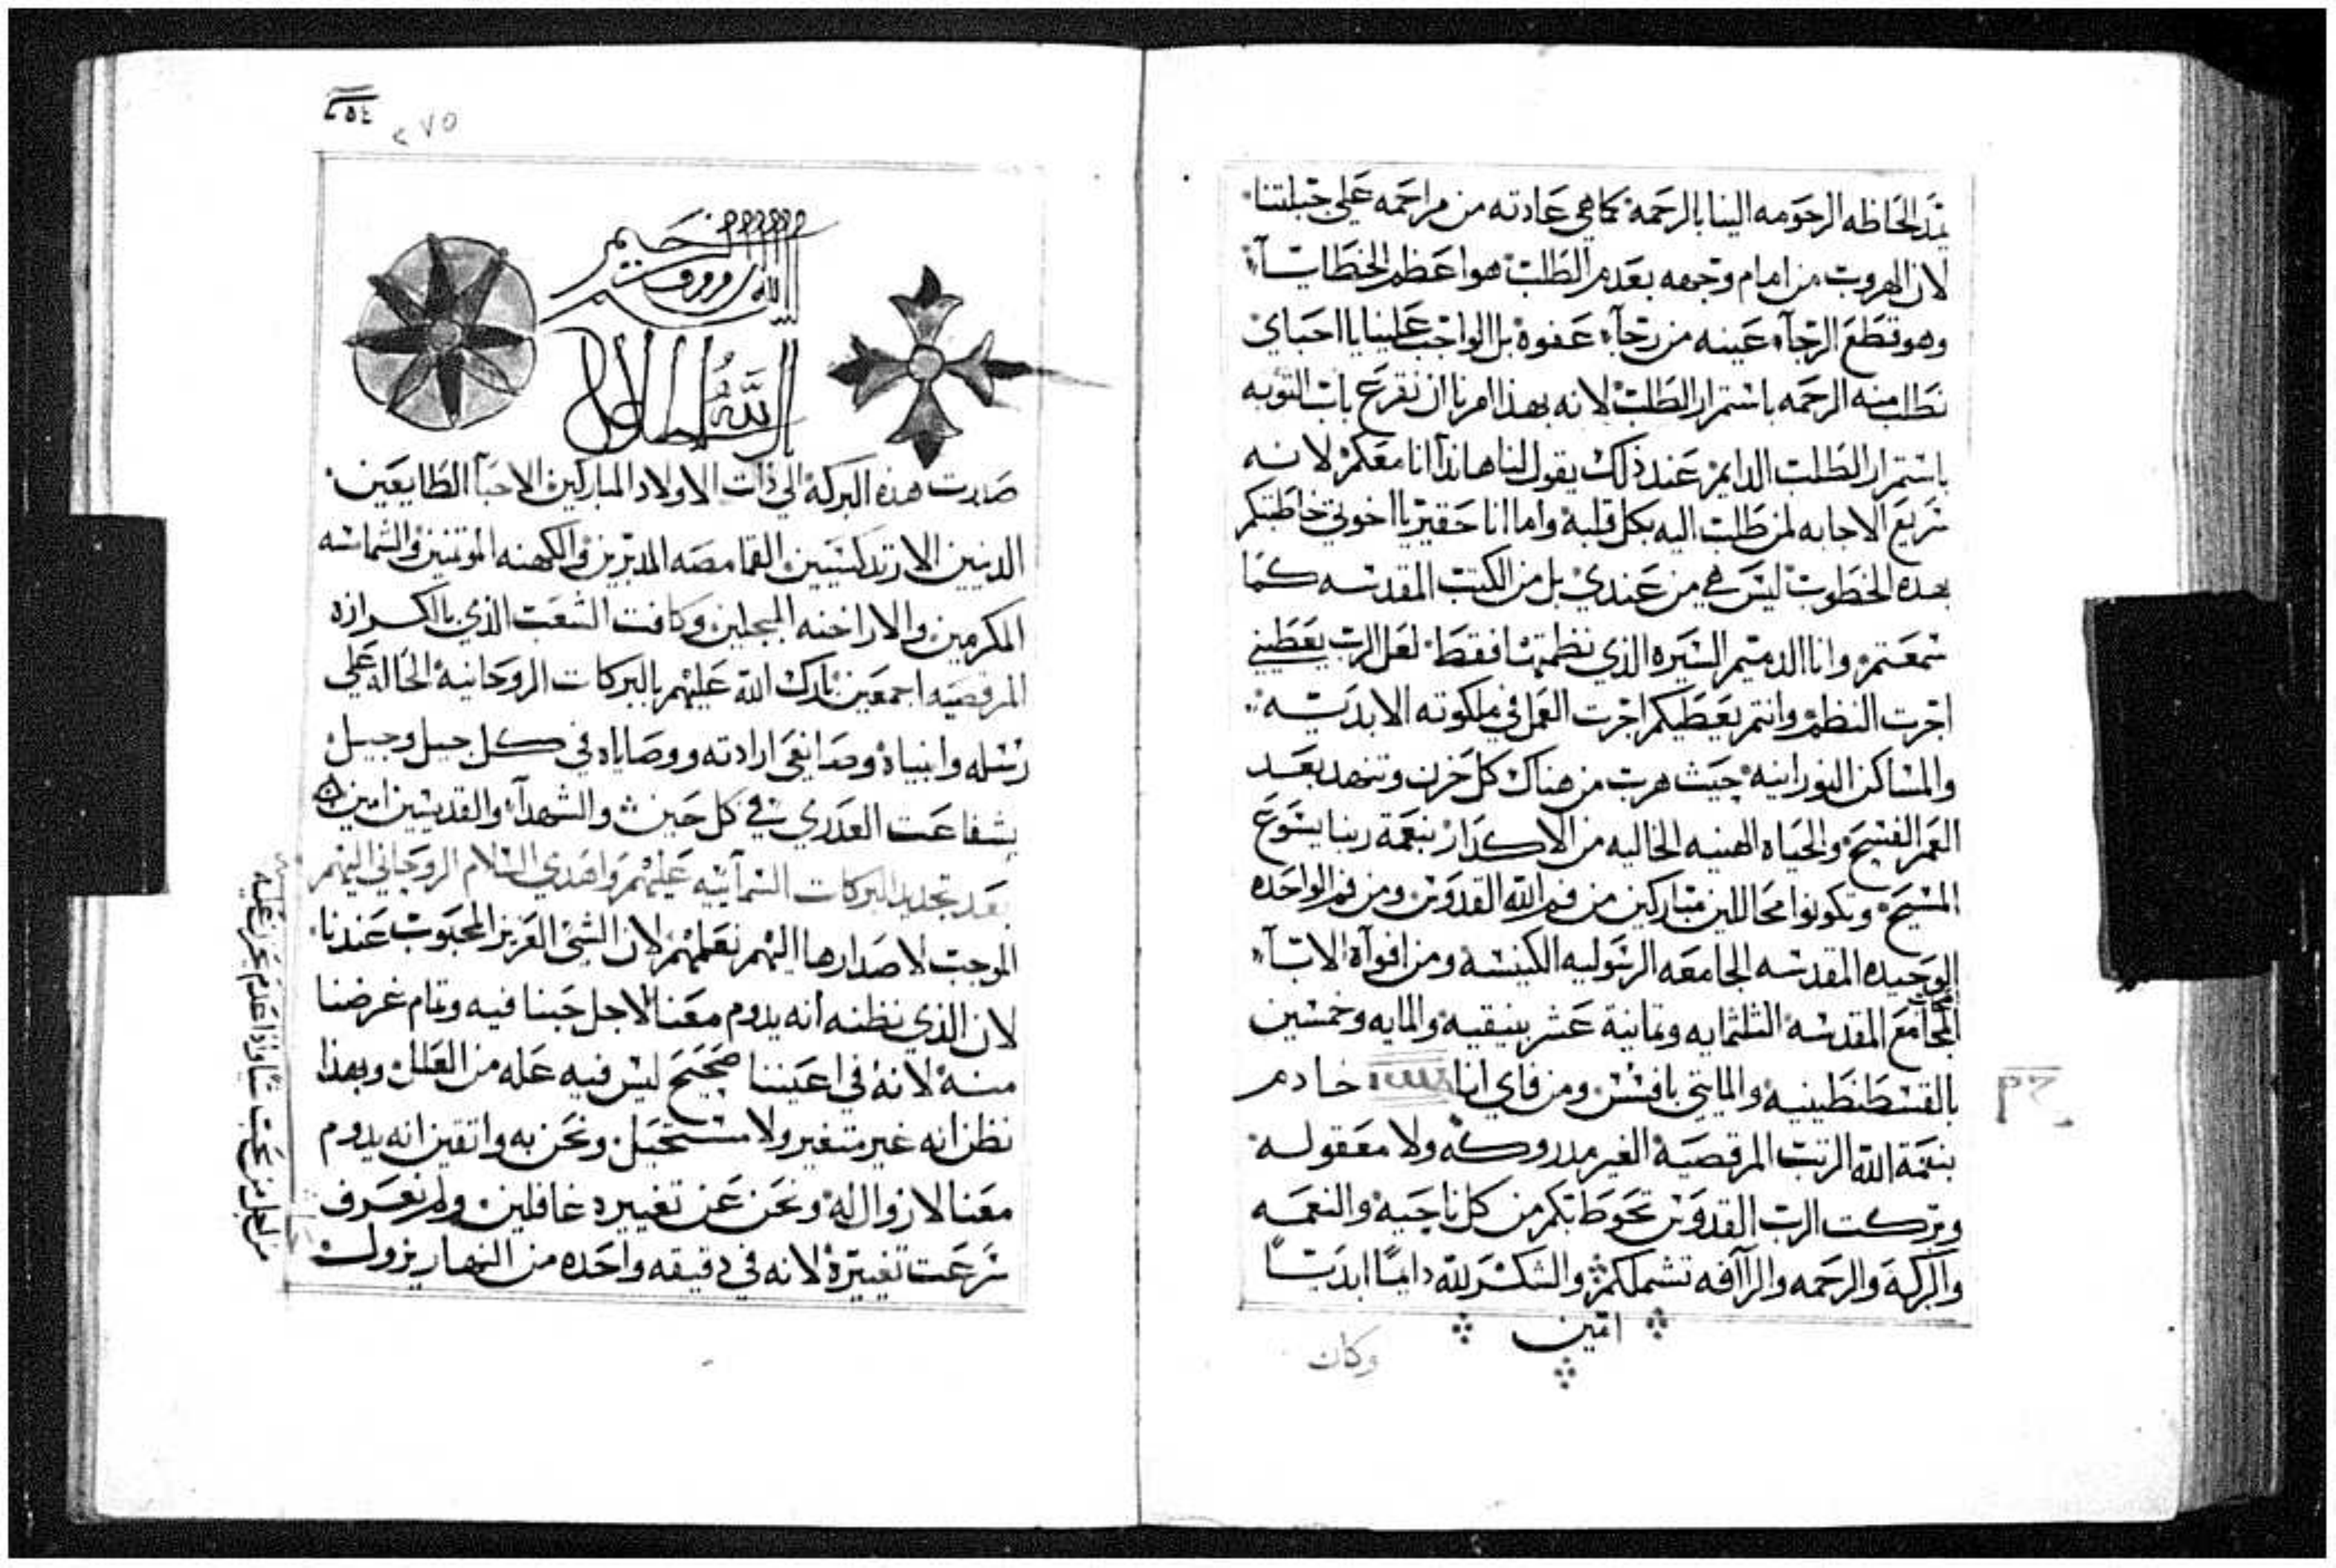 يمد الحاظه الرحومه الينا بالرحمة كما هي عادته من مراحمه علي جبلتنا
لان الهروب من امام وجهه بعدم الطلب هو اعظم الخطايا
وهو قطع الرجاء عينه من رجاء عفوه بل الواجب علينا يا احباي
نطلب منه الرحمه باستمرار الطلب لانه بهذا امرنا ان نقرع باب التوبه
باستمرار الطلب الدايم عند ذلك يقول لنا هانذا انا معكم لانه
سريع الاجابه لمن طلب اليه بكل قلبه واما انا حقير يا اخوتي خاطبتكم
بهده الخطوب ليس هي من عندي بل من الكتب المقدسه كما
سمعتم وانا الدميم السيره الذي نظمتها فقط لعل الرب يعطيني
اجرت النظم وانتم يعطيكم اجرت العمل في ملكوته الابديه
والمساكن النورانيه حيث هرب من هناك كل حزن وتنهد بعد
العمر الفسيح والحياه الهنيه الخاليه من الاكدار بنعمة ربنا يسوع
المسيح وتكونوا محاللين مباركين من فم الله القدوس ومن فم الواحده
الوحيده المقدسه الجامعه الرسوليه الكنيسة ومن افواه الاباء
المجامع المقدسة الثلثمايه وتمانية عشر بنيقيه والمايه وخمسين
بالقسطنطينيه والمايتي بافسس ومن فاي انا خادم
بنعمة الله الرتب المرقصية الغير مدروكه ولا معقوله
وبركت الرب القدوس تحوط بكم من كل ناحيه والنعمه
والبركة والرحمه والرآفه تشملكم والشكر لله دايماً ابدياً
امين
وكان
٢٧٥
بسم الله الرووف الرحيم
صدرت هده البركة الي ذات الاولاد المباركين الاحبا الطايعين
الدينين الارتدكسيين القمامصه المدبرين والكهنه الموتمنين والشماسه
المكرمين والاراخنه المبجلين وكافت الشعب الذي بالكرازه
المرقصيه اجمعين بارك الله عليهم بالبركات الروحانية الحاله علي
رسله وانبياه وصانعي ارادته ووصاياه في كل جيل وجيل
بشفاعت العدري في كل حين والشهدآء والقديسين امين
بعد تجديد البركات السمآييه عليهم واهدي السلام الروحاني اليهم
الموجب لاصدارها اليهم نعلمهم لان الشي العزيز المحبوب عندنا
لان الذي نظنه انه يدوم معنا لاجل حبنا فيه وتمام غرضنا
منه لانه في اعيننا صحيح ليس فيه عله من العلل وبهذا
نظن انه غير متغير ولا مستحيل ونحن به واتقين انه يدوم
معنا لا زوال له ونحن عن تغييره غافلين ولم نعرف
سرعت تغييره لانه في دقيقه واحده من النهار يزول
من اجل من نحب شيا واذا عدم نحزن عليه